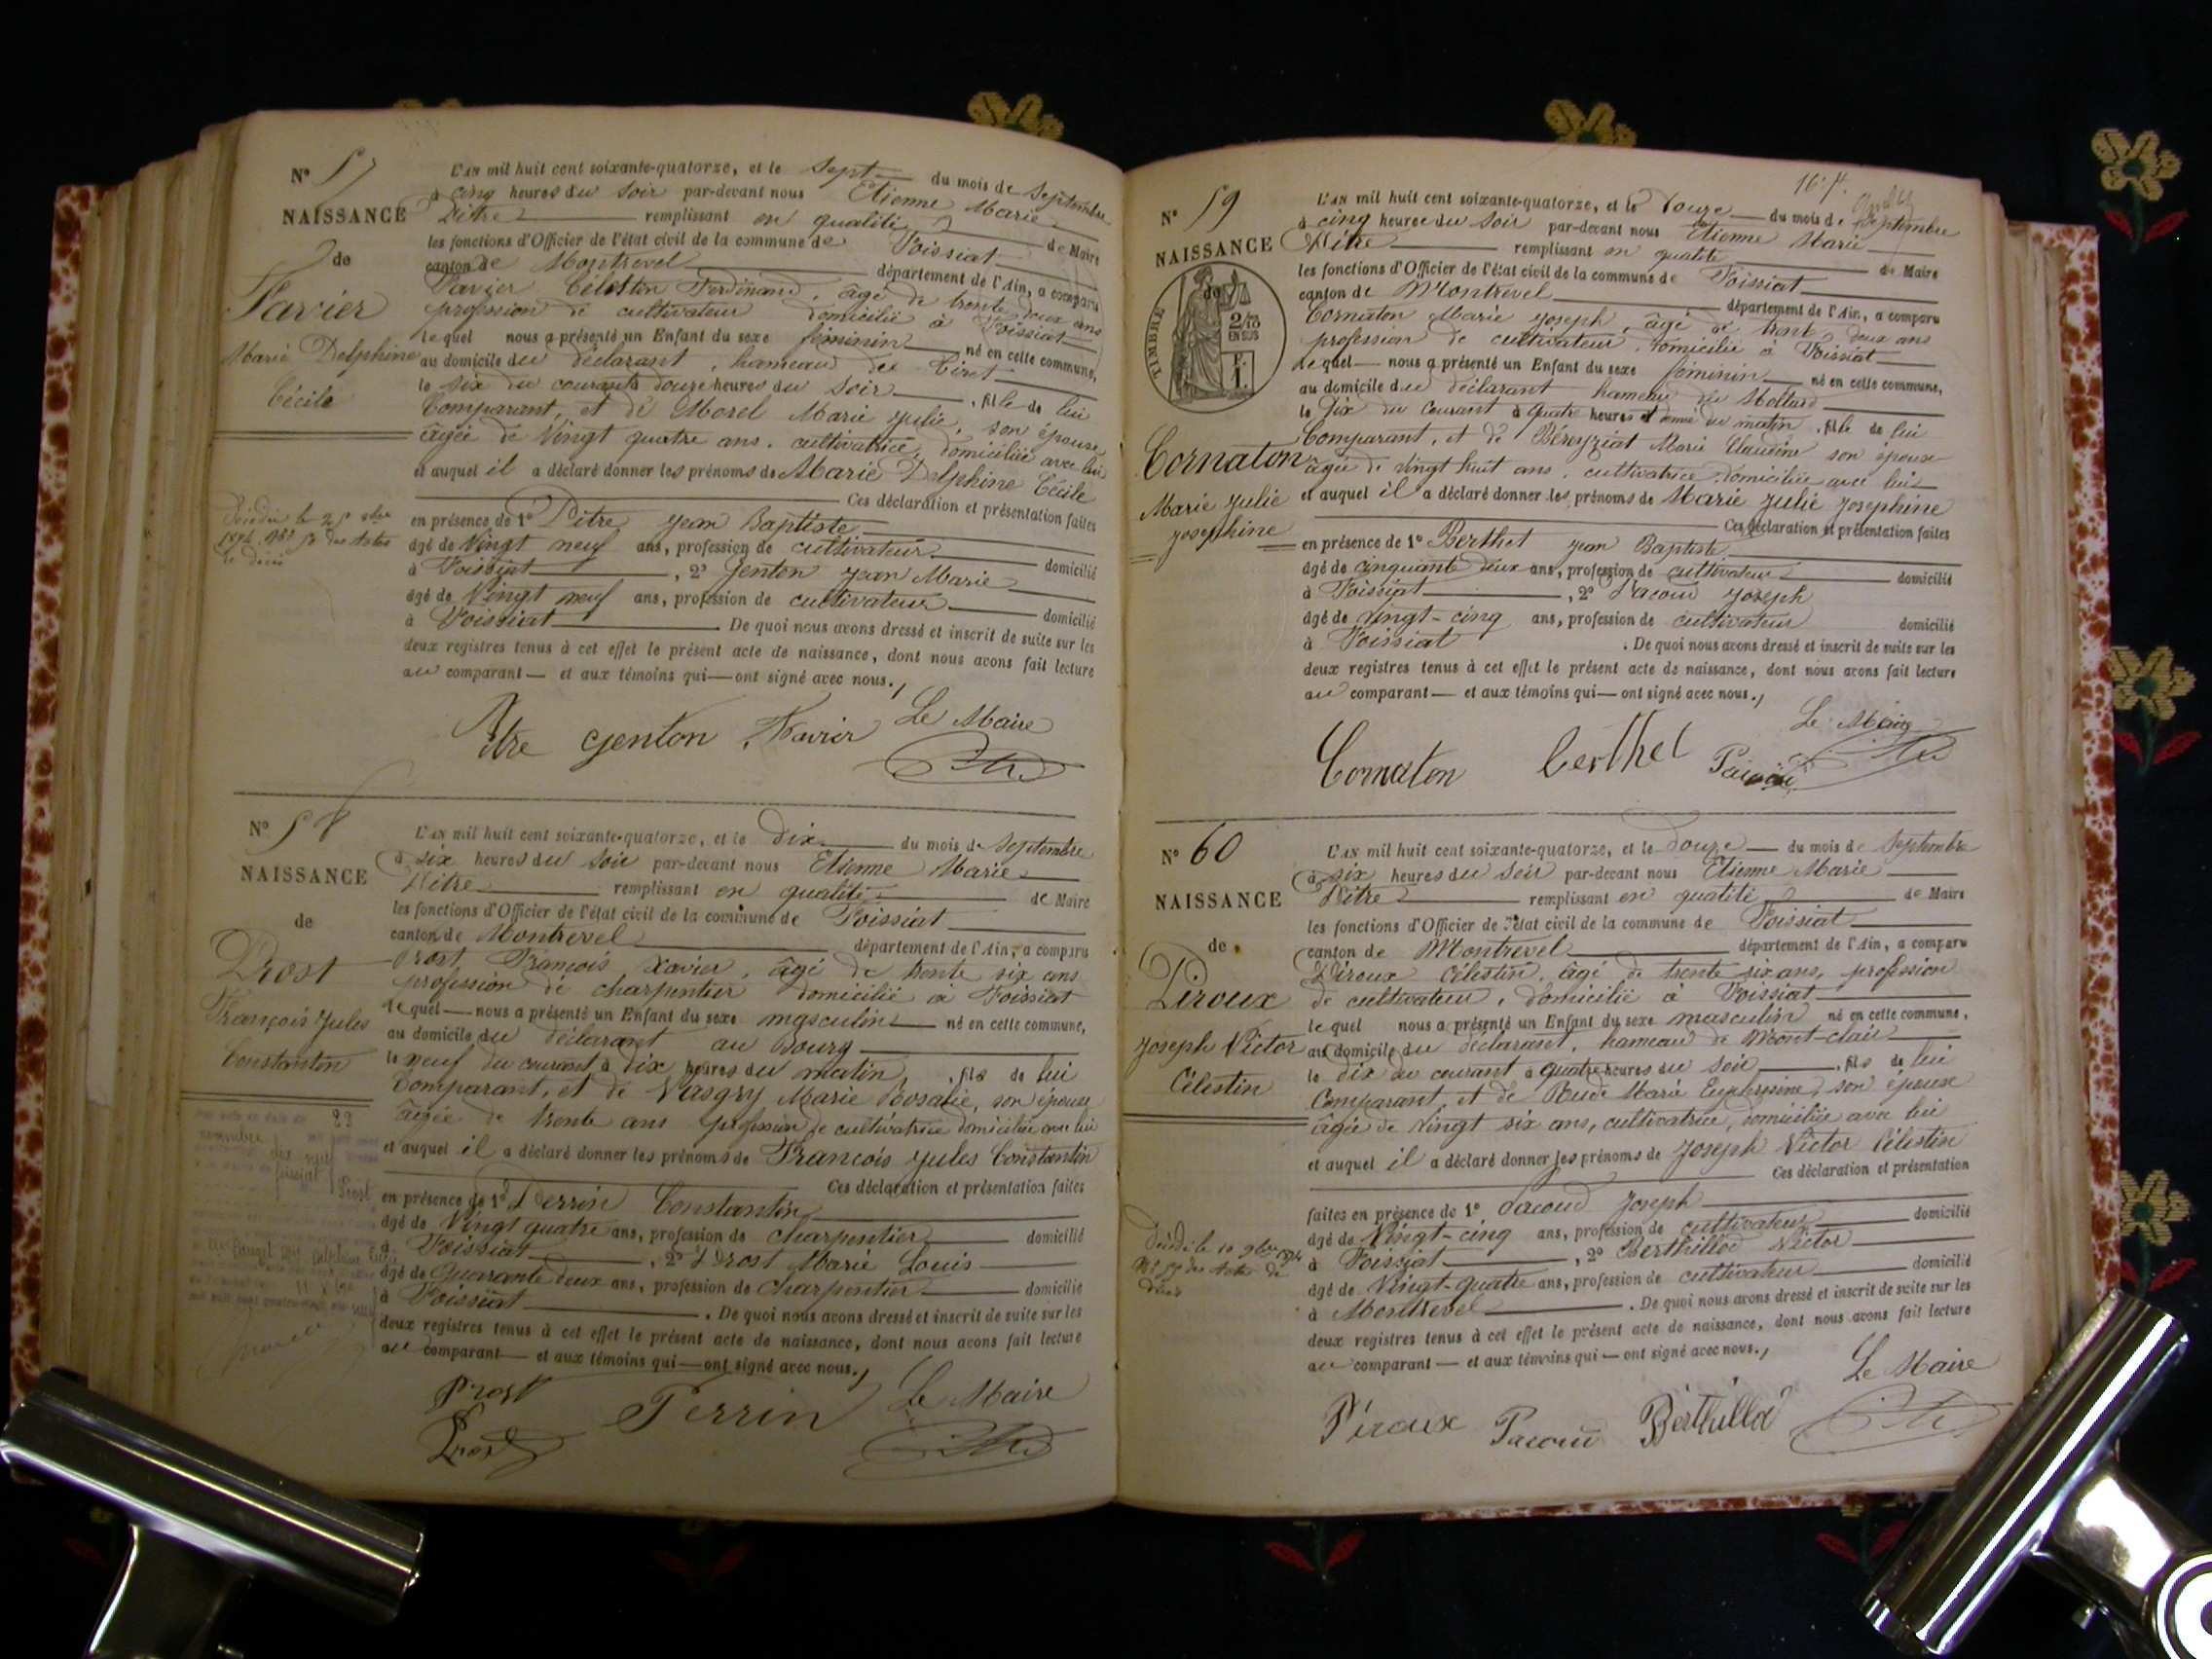 Nº 57
NAISSANCE
de
Favier
Marie Delphine
Cécile
L'AN mil huit cent soixante-quatorze, et le sept du mois de Septembre
à cinq heures du soir par-devant nous Etienne Marie
Pitre remplissant en qualité de Maire
les fonctions d'Officier de l'état civil de la commune de Foissiat
canton de Montrevel département de l'Ain, a comparu
Favier Célestin Ferdinand, âgé de trente deux ans
profession de cultivateur domicilié à Foissiat
lequel nous a présenté un Enfant du sexe féminin né en cette commune,
au domicile du déclarant, hameau de
le six du courant à douze heures du soir, fille de lui
Comparant, et de Morel Marie Julie, son épouse
âgée de Vingt quatre ans, cultivatrice, domiciliée avec lui
et auquel il a déclaré donner les prénoms de Marie Delphine Cécile
Ces déclaration et présentation faites
en présence de 1º Pitre Jean Baptiste
âgé de Vingt neuf ans, profession de cultivateur domicilié
à Foissiat, 2º Genton Jean Marie
âgé de Vingt neuf ans, profession de cultivateur domicilié
à Foissiat. De quoi nous avons dressé et inscrit de suite sur les
deux registres tenus à cet effet le présent acte de naissance, dont nous avons fait lecture
au comparant et aux témoins qui ont signé avec nous.
Le Maire
Pitre genton Favier
Nº 58
NAISSANCE
de
Prost
François Jules
Constantin
L'AN mil huit cent soixante-quatorze, et le dix du mois de Septembre
à six heures du soir par-devant nous Etienne Marie
Pitre remplissant en qualité de Maire
les fonctions d'Officier de l'état civil de la commune de Foissiat
canton de Montrevel département de l'Ain, a comparu
Prost François Xavier, âgé de trente six ans
profession de charpentier domicilié à Foissiat
lequel nous a présenté un Enfant du sexe masculin né en cette commune,
au domicile du déclarant au Bourg
le neuf du courant à dix heures du matin, fils de lui
Comparant, et de Vasgry Marie Rosalie, son épouse
âgée de trente ans profession de cultivatrice domiciliée avec lui
et auquel il a déclaré donner les prénoms de François Jules Constantin
Ces déclaration et présentation faites
en présence de 1º Perrin Constantin
âgé de Vingt quatre ans, profession de charpentier domicilié
à Foissiat, 2º Prost Marie Louis
âgé de Quarante deux ans, profession de charpentier domicilié
à Foissiat. De quoi nous avons dressé et inscrit de suite sur les
deux registres tenus à cet effet le présent acte de naissance, dont nous avons fait lecture
au comparant et aux témoins qui ont signé avec nous.
Prost Perrin Le Maire
Prost
Nº 59
NAISSANCE
de
TIMBRE
Cornaton
Marie Julie
Josephine
L'AN mil huit cent soixante-quatorze, et le Douze du mois de Septembre
à cinq heures du soir par-devant nous Etienne Marie
Pitre remplissant en qualité de Maire
les fonctions d'Officier de l'état civil de la commune de Foissiat
canton de Montrevel département de l'Ain, a comparu
Cornaton Marie Joseph, âgé de trente deux ans
profession de cultivateur, domicilié à Foissiat
lequel nous a présenté un Enfant du sexe féminin né en cette commune,
au domicile du déclarant hameau du Mollard
le Dix du courant à quatre heures et demie du matin, fille de lui
Comparant, et de Béreyziat Marie Claudine son épouse
âgée de vingt huit ans, cultivatrice domiciliée avec lui
et auquel il a déclaré donner les prénoms de Marie Julie Josephine
Ces déclaration et présentation faites
en présence de 1º Berthet Jean Baptiste
âgé de cinquante deux ans, profession de cultivateur domicilié
à Foissiat, 2º Pacoud Joseph
âgé de vingt-cinq ans, profession de cultivateur domicilié
à Foissiat. De quoi nous avons dressé et inscrit de suite sur les
deux registres tenus à cet effet le présent acte de naissance, dont nous avons fait lecture
au comparant et aux témoins qui ont signé avec nous.
Le Maire
Cornaton berthet
Nº 60
NAISSANCE
de
Piroux
Joseph Victor
Célestin
L'AN mil huit cent soixante-quatorze, et le Douze du mois de Septembre
à six heures du soir par-devant nous Etienne Marie
Pitre remplissant en qualité de Maire
les fonctions d'Officier de l'état civil de la commune de Foissiat
canton de Montrevel département de l'Ain, a comparu
Piroux Célestin, âgé de trente six ans, profession
de cultivateur, domicilié à Foissiat
lequel nous a présenté un Enfant du sexe masculin né en cette commune,
au domicile du déclarant, hameau de Mont-clair
le dix du courant à quatre heures du soir, fils de lui
Comparant, et de Marie Euphrosine, son épouse
âgée de vingt six ans, cultivatrice, domiciliée avec lui
et auquel il a déclaré donner les prénoms de Joseph Victor Célestin
Ces déclaration et présentation
faites en présence de 1º Pacoud Joseph
âgé de Vingt-cinq ans, profession de cultivateur domicilié
à Foissiat, 2º Berthillod Victor
âgé de Vingt-quatre ans, profession de cultivateur domicilié
à Montrevel. De quoi nous avons dressé et inscrit de suite sur les
deux registres tenus à cet effet le présent acte de naissance, dont nous avons fait lecture
au comparant et aux témoins qui ont signé avec nous.
Le Maire
Piroux Pacoud Berthillod